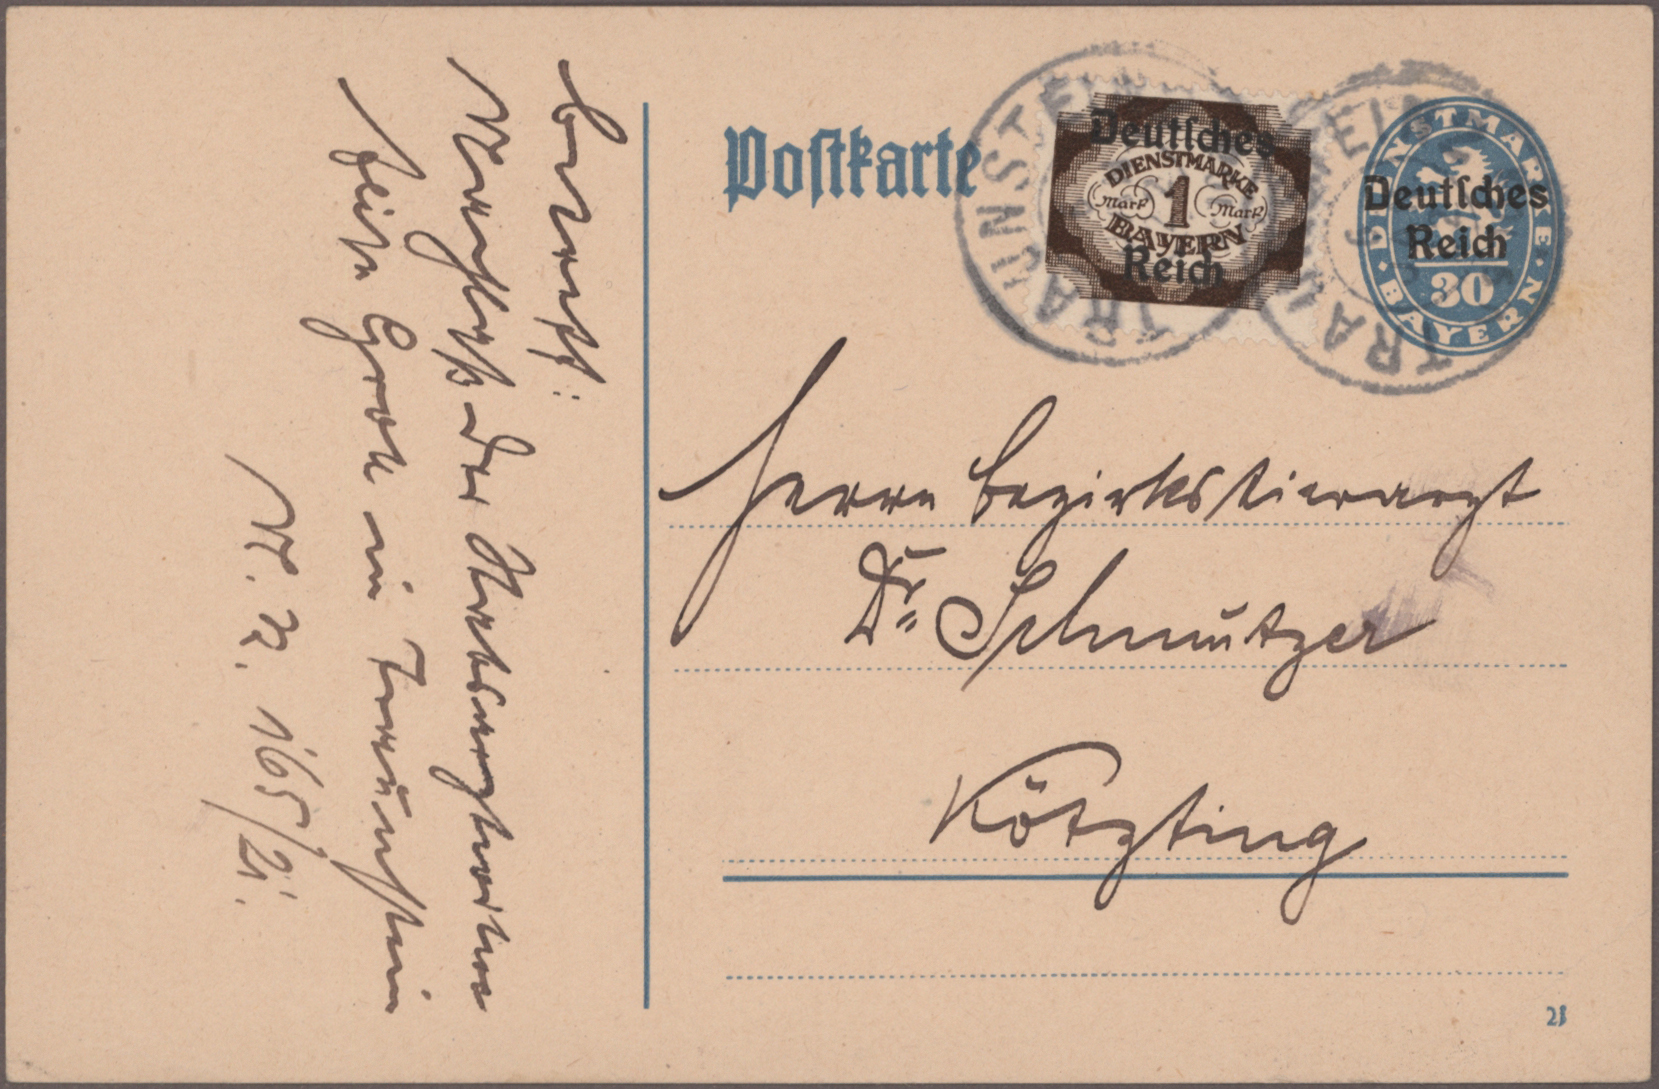 Betreff:
Nachlaß der Bezirksarztswitwe
Grock in Traunstein
N. R. 165/21.
Postkarte
TRAUNSTEIN
TRAUNSTEIN
Deutsches
DIENSTMARKE
Mark 1 Mark
BAYERN
Reich
DIENSTMARKE
Deutsches
Reich
30
BAYERN
Herrn Bezirkstierarzt
Dr. Schmutzer
Kötzting
21